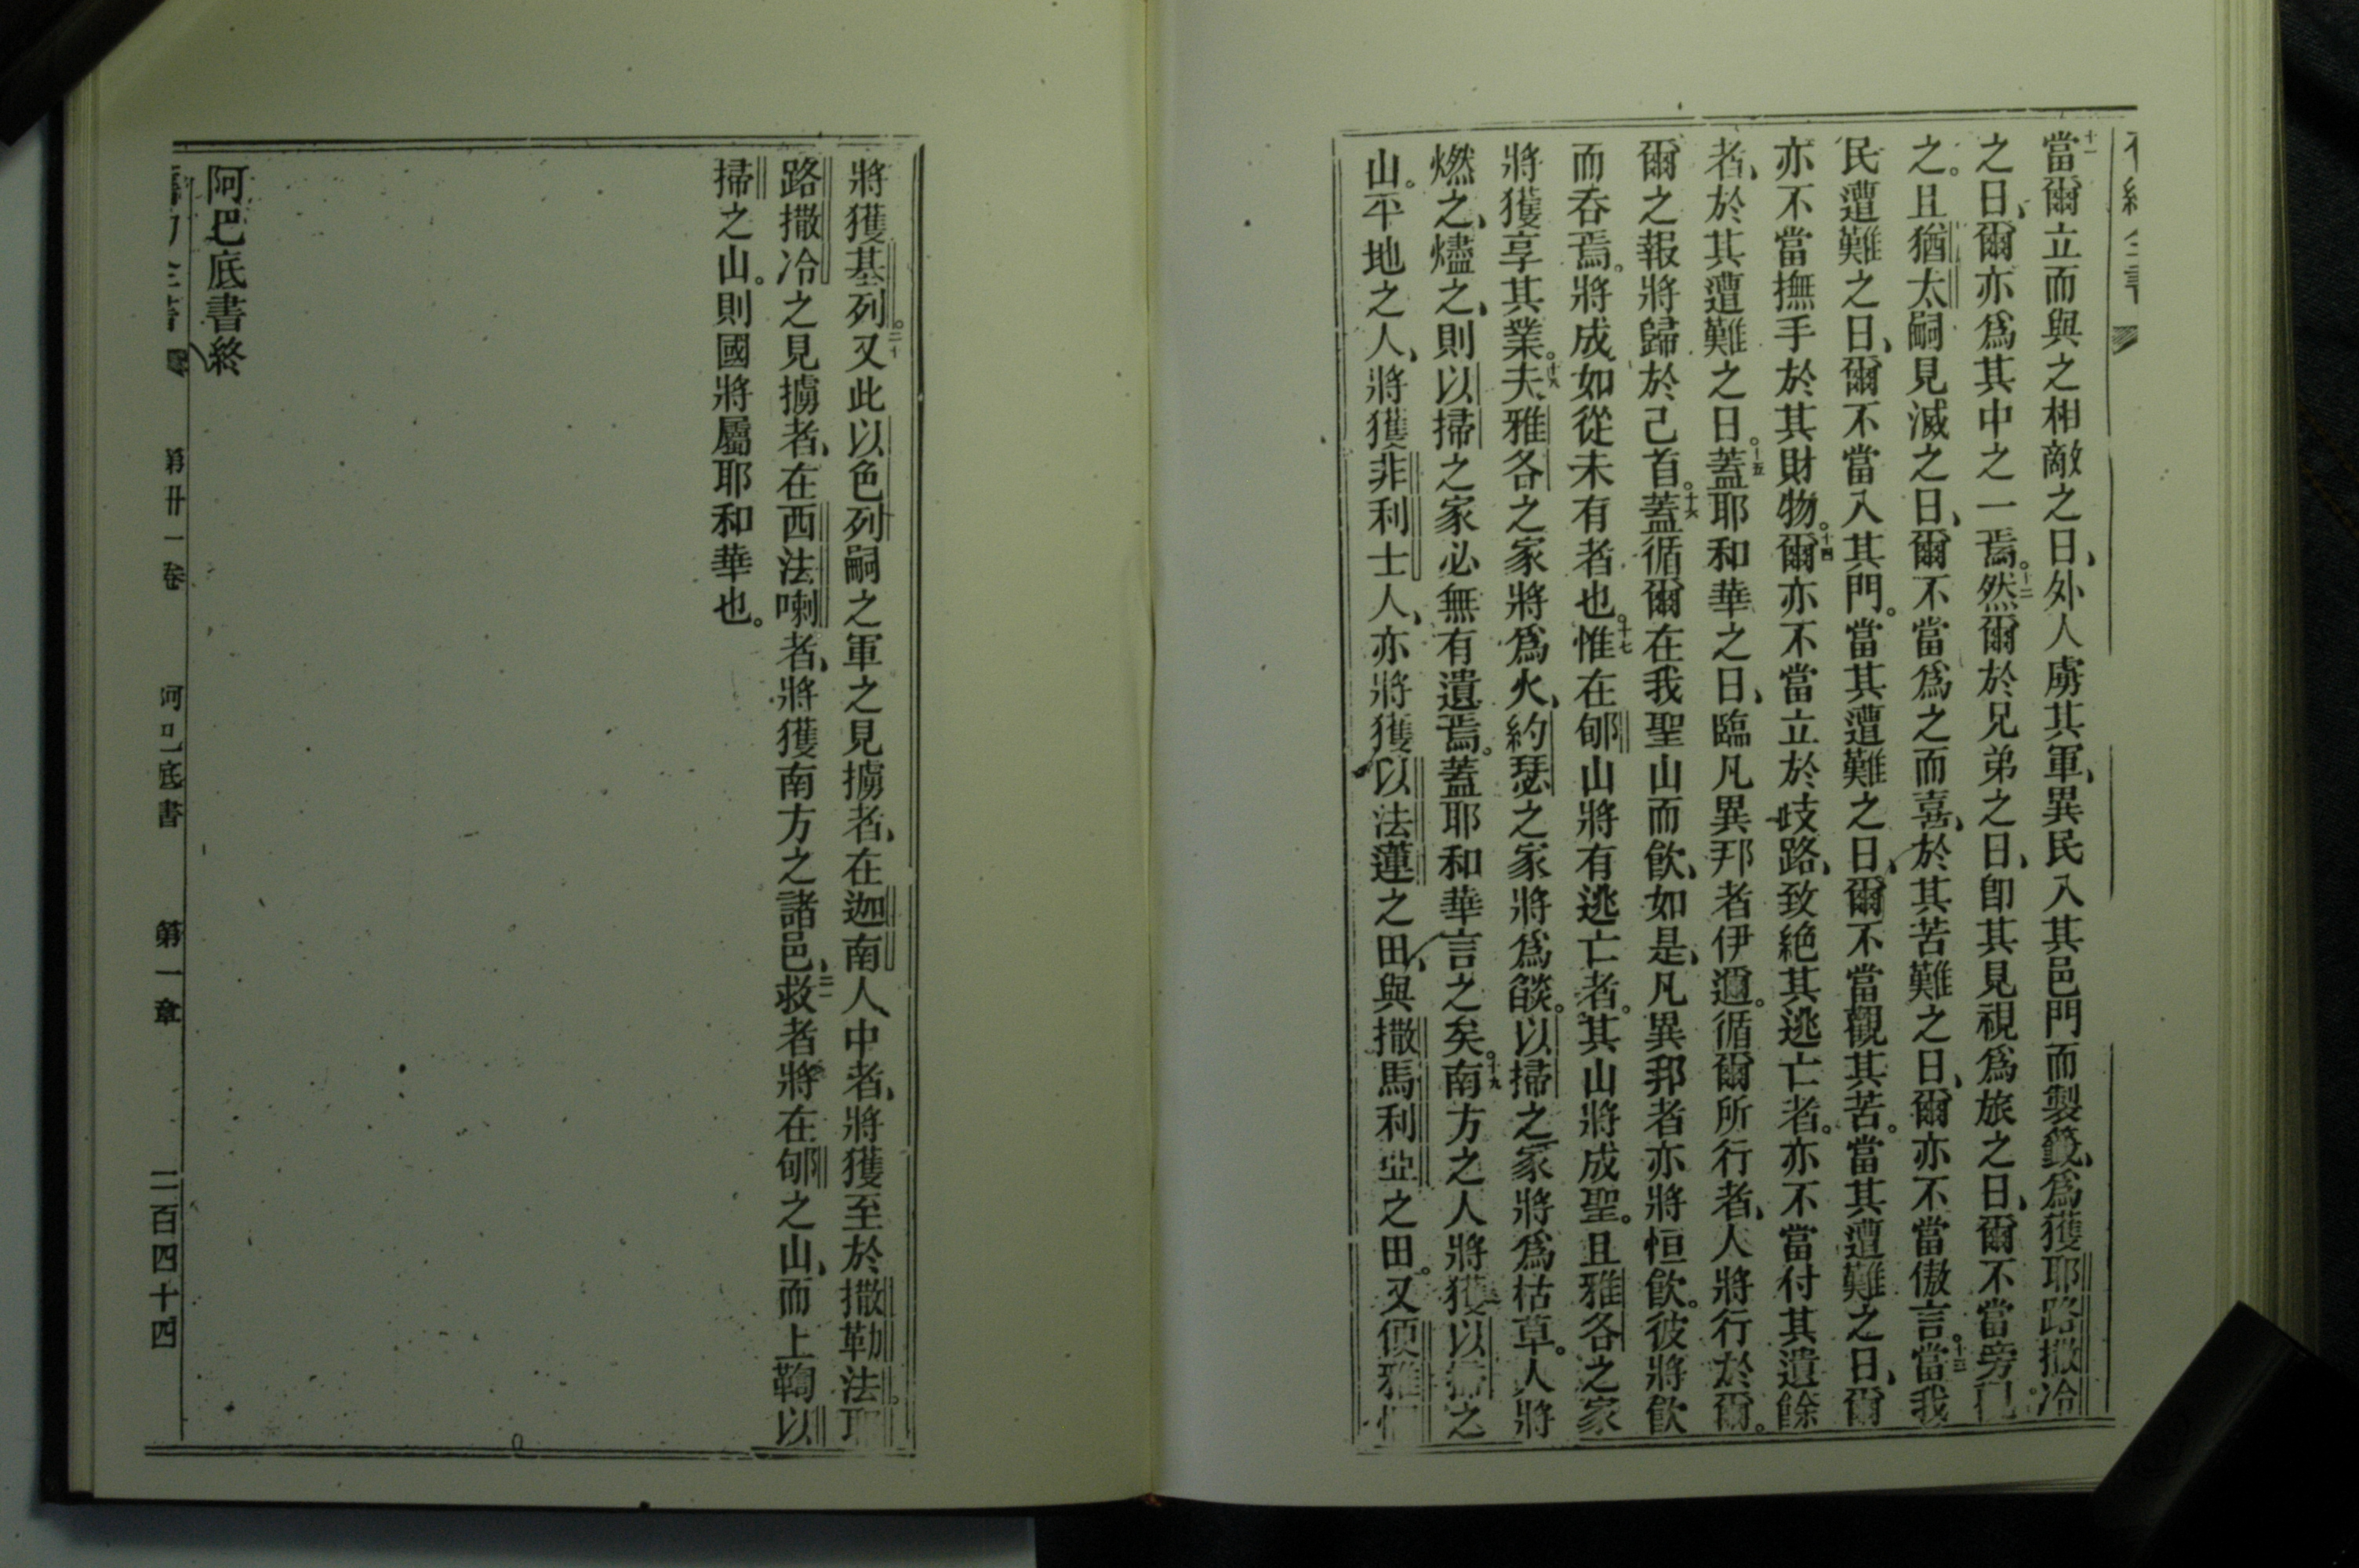 十一當爾立而與之相敵之日、外人虜其軍、異民入其邑門而製籤、爲獲耶路撒冷
之日、爾亦爲其中之一焉。十二然爾於兄弟之日、卽其見視爲旅之日、爾不當旁
之。且猶太嗣見滅之日、爾不當爲之而喜、於其苦難之日、爾亦不當傲言。十三當我
民遭難之日、爾不當入其門。當其遭難之日、爾不當觀其苦。當其遭難之日、爾
亦不當撫手於其財物。十四爾亦不當立於歧路、致絶其逃亡者。亦不當付其遺餘
者、於其遭難之日。十五蓋耶和華之日、臨凡異邦者伊邇。循爾所行者、人將行於爾。
爾之報將歸於己首。十六蓋循爾在我聖山而飮、如是、凡異邦者亦將恒飮。彼將飮
而吞焉。將成如從未有者也。十七惟在郇山將有逃亡者。其山將成聖。且雅各之家
將獲享其業。十八夫雅各之家將爲火、約瑟之家將爲燄。以掃之家將爲枯草。人將
燃之、燼之、則以掃之家必無有遺焉。蓋耶和華言之矣。十九南方之人將獲以掃之
山。平地之人、將獲非利士人、亦將獲以法蓮之田、與撒馬利亞之田。又便雅憫
將獲基列。二十又此以色列嗣之軍之見擄者、在迦南人中者、將獲至於撒勒法。耶
路撒冷之見擄者、在西法喇者、將獲南方之諸邑。二一救者將在郇之山、而上鞫以
掃之山。則國將屬耶和華也。
阿巴底書終
第卅一卷 阿巴底書 第一章 二百四十四